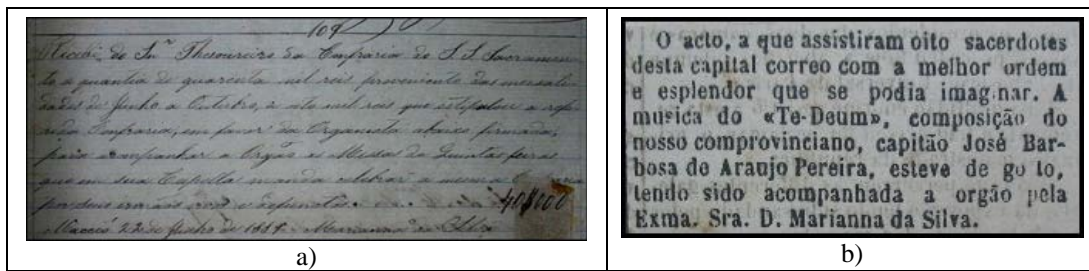 109
Recebi do Snr. Thesoureiro da Confraria do S. S. Sacramen-
to a quantia de quarenta mil reis, proveniente das mensali-
dades de Junho a Outubro, a oito mil reis que a refe-
rida Confraria, em favor da Organista abaixo firmada,
para acompanhar a Orgão as Missas das Quintas feiras
que em sua Capella manda celebrar a mesma
por seus irmãos vivos e defuntos. 40$000
Maceió 22 de Junho de Marianna da Silva
a)
O acto, a que assistiram oito sacerdotes
desta capital correo com a melhor ordem
e esplendor que se podia imag nar. A
musica do «Te-Deum», composição do
nosso comprovinciano, capitão José Bar-
bosa de Araujo Pereira, esteve de go to,
tendo sido acompanhada a orgão pela
Exma. Sra. D. Marianna da Silva.
b)